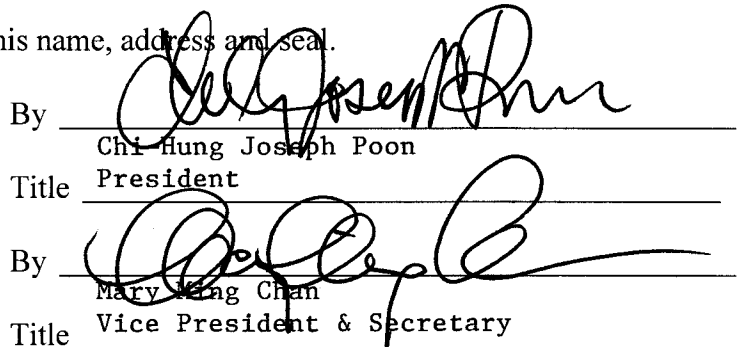 his name, address and seal.
By
Chi Hung Joseph Poon
Title President
By
Mary Ming Chan
Title Vice President & Secretary